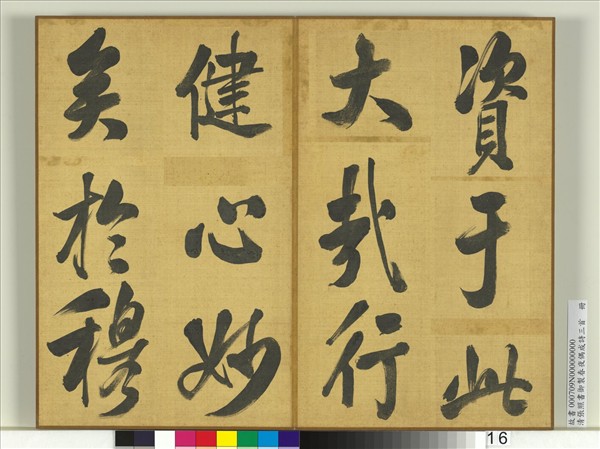 資于此
大哉行
健心妙
矣於穆
故書000709N000000000
清張照書御製春夜偶成詩三首　冊
16